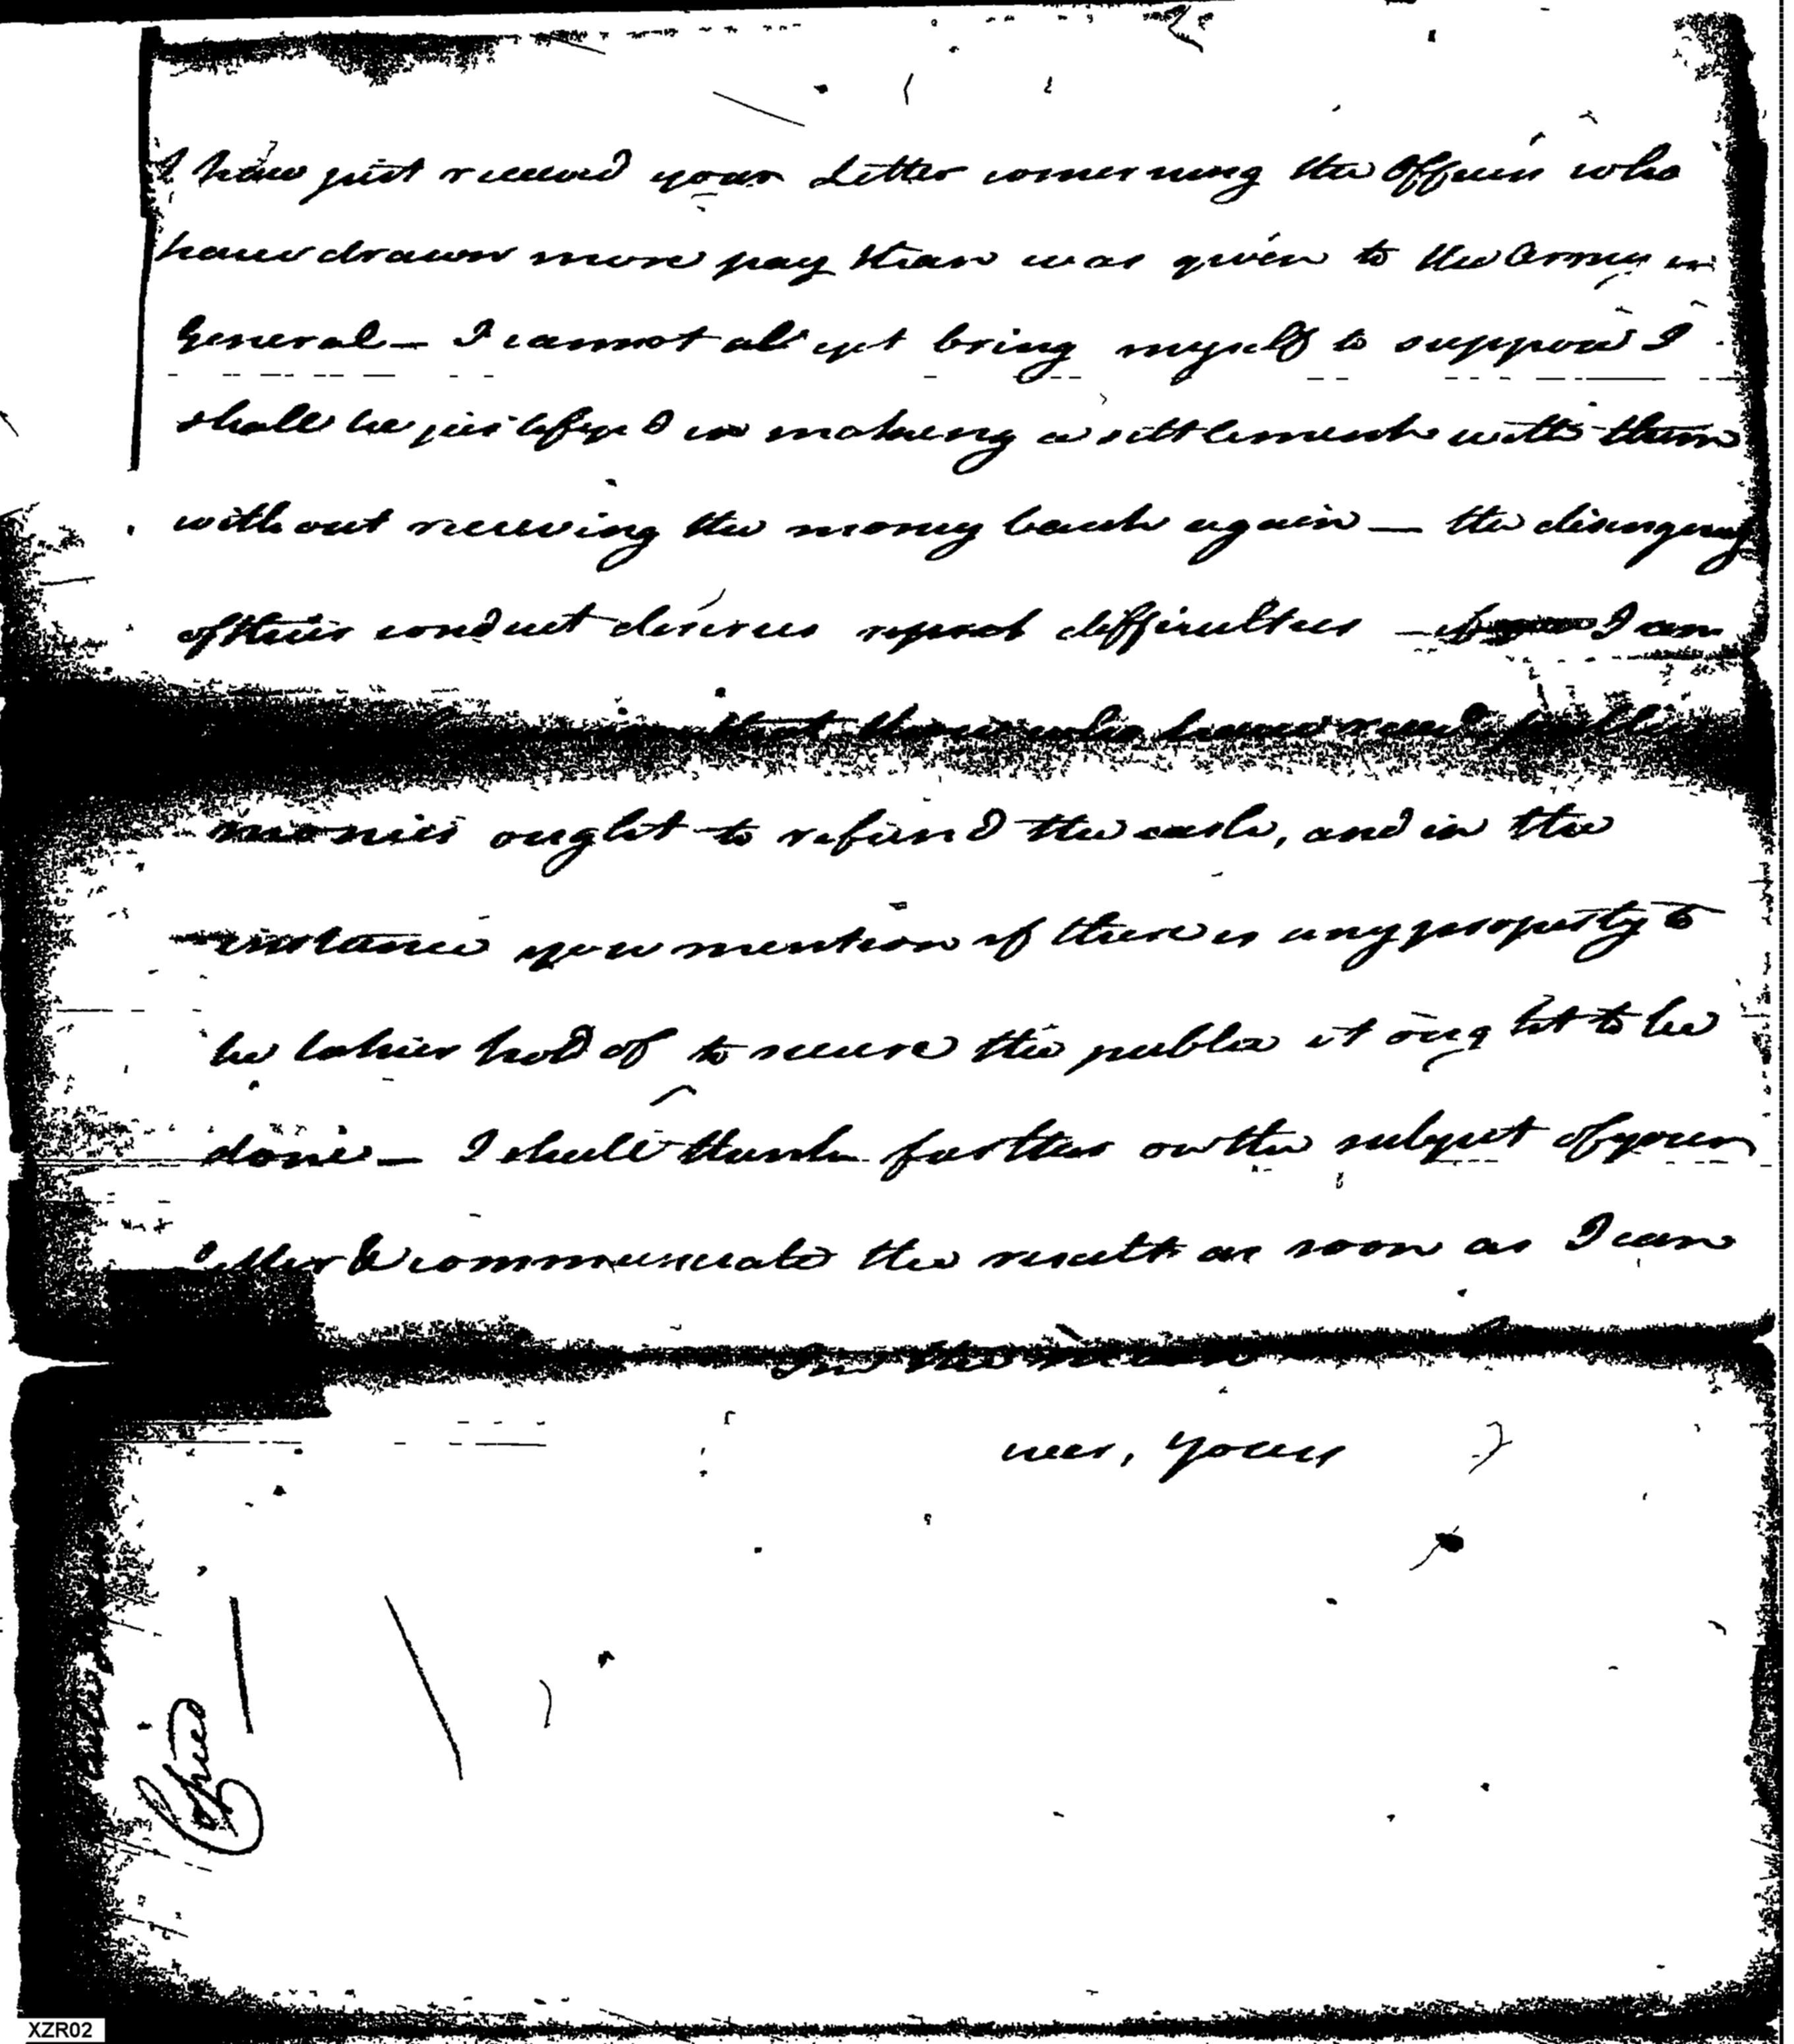 I have just received your Letter concerning the Officers who
have drawn more pay than was given to the Army in
General — I cannot as yet bring myself to suppose I
shall be justifyed in making a settlement with them
without receiving the money back again — the disingenuity
of their conduct deserves difficulties — I am
that those who have recd. public
monies ought to refund the cash, and in the
instance you mention if there is any property to
be taken hold of to secure the public it ought to be
done — I shall think further on the subject of your
letter & communicate the result as soon as I can
In the mean
Yours
Copied
XZR02